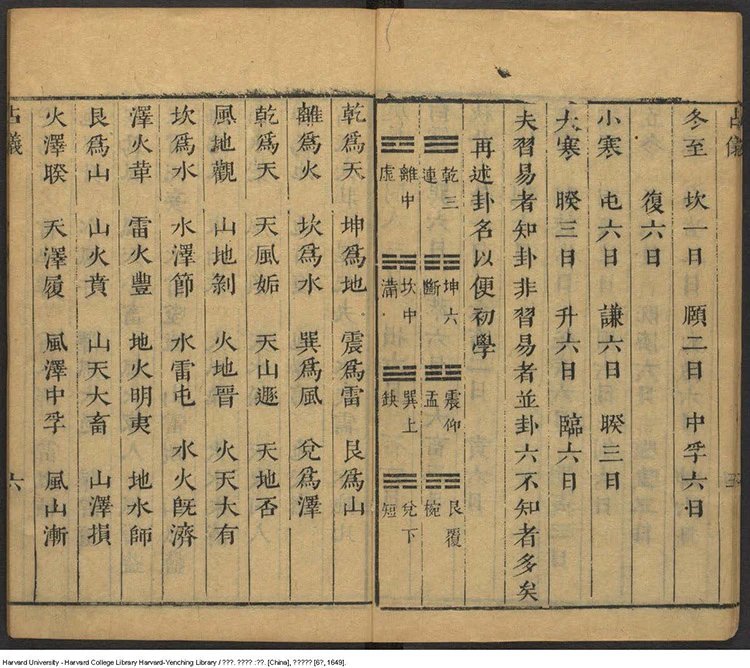 占儀
冬至 坎一日 頤二日 中孚六日
復六日
小寒 屯六日 謙六日 睽三日
大寒 睽三日 升六日 臨六日
夫習易者知卦非習易者並卦六不知者多矣
再述卦名以便初學
☰ 乾三連 ☷ 坤六斷 ☳ 震仰盂 ☶ 艮覆椀
☲ 離中虛 ☵ 坎中滿 ☴ 巽上缺 ☱ 兌下短
乾爲天 坤爲地 震爲雷 艮爲山
離爲火 坎爲水 巽爲風 兌爲澤
乾爲天 天風姤 天山遯 天地否
風地觀 山地剝 火地晉 火天大有
坎爲水 水澤節 水雷屯 水火旣濟
澤火革 雷火豐 地火明夷 地水師
艮爲山 山火賁 山天大畜 山澤損
火澤睽 天澤履 風澤中孚 風山漸
占儀 六
Harvard University - Harvard College Library Harvard-Yenching Library / ???. ???? :??. [China], ????? [6?, 1649].